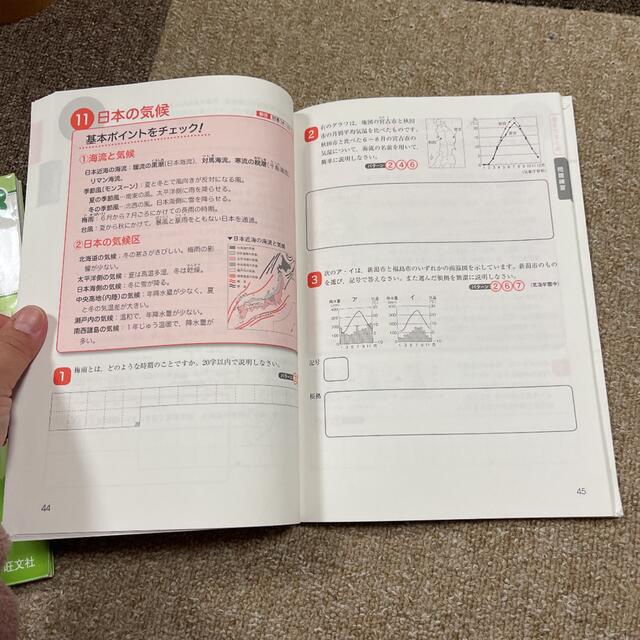 11 日本の気候
基本ポイントをチェック!
①海流と気候
日本近海の海流:暖流の黒潮(日本海流)、対馬海流、寒流の親潮(千島海流)
リマン海流。
季節風(モンスーン):夏と冬とで風向きが反対になる風。
夏の季節風…南東の風。太平洋側に雨を降らせる。
冬の季節風…北西の風。日本海側に雪を降らせる。
梅雨:6月から7月ごろにかけての長雨の時期。
台風:夏から秋にかけて、暴風と豪雨をともない日本を通過。
②日本の気候区
北海道の気候:冬の寒さがきびしい。梅雨の影
響が少ない。
太平洋側の気候:夏は高温多湿、冬は乾燥。
日本海側の気候:冬に雪が降る。
中央高地(内陸)の気候:年降水量が少なく、夏
と冬の気温差が大きい。
瀬戸内の気候:温和で、年降水量が少ない。
南西諸島の気候:1年じゅう温暖で、降水量が
多い。
▼日本近海の海流と気候
1 梅雨とは、どのような時期のことですか。20字以内で説明しなさい。
パターン
20
44
2 右のグラフは、地図の宮古市と秋田
市の月別平均気温を比べたものです。
秋田市と比べた6~8月の宮古市の
気温について、海流の名前を用いて、
簡単に説明しなさい。
パターン 2 4 6
問題演習
3 次のア・イは、新潟市と福島市のいずれかの雨温図を示しています。新潟市のもの
を選び、記号で答えなさい。また選んだ根拠を簡潔に説明しなさい。
パターン 2 6 7
ア イ
記号
根拠
45
旺文社